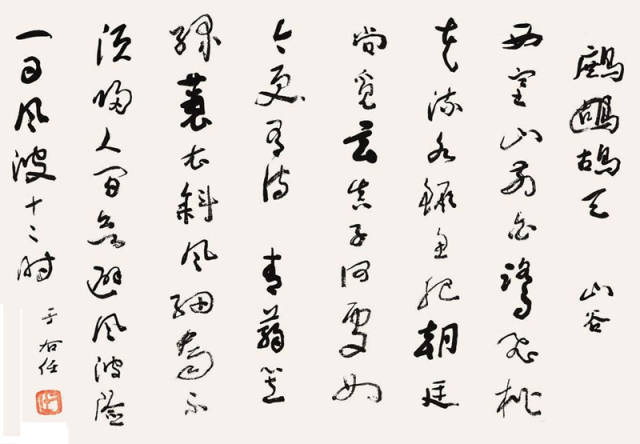 鷓鴣天 山谷
西塞山前白鷺飛桃
花流水鱖魚肥朝廷
尚覓玄真子何處如
今更有詩 青蒻笠
綠蓑衣斜風細雨不
須歸人間欲避風波險
一日風波十二時
于右任